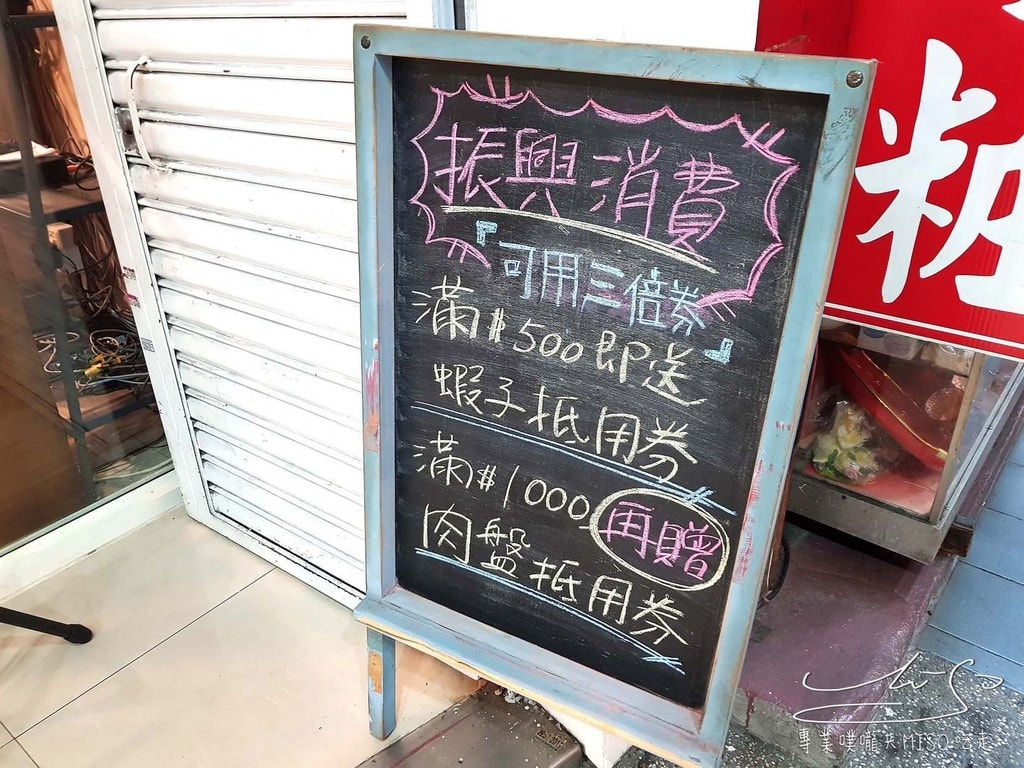 振興消費
『可用三倍券』
滿$500即送
蝦子抵用券
滿$1000再贈
肉盤抵用券
專業噗嚨共MISO吃走